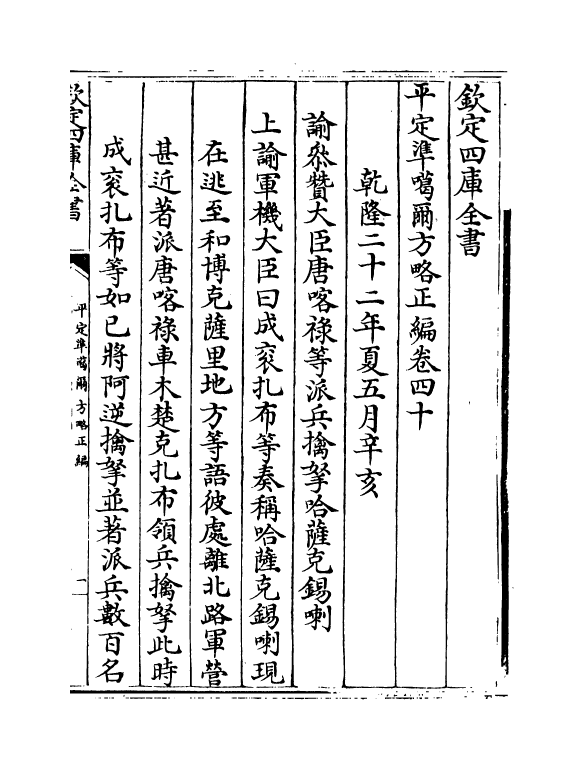 欽定四庫全書
平定準噶爾方略正編卷四十
乾隆二十二年夏五月辛亥
諭叅贊大臣唐喀祿等派兵擒拏哈薩克錫喇
上諭軍機大臣曰成衮扎布等奏稱哈薩克錫喇現
在逃至和博克薩里地方等語彼處離北路軍營
甚近著派唐喀祿車木楚克扎布領兵擒拏此時
成衮扎布等如已將阿逆擒拏並著派兵數百名
欽定四庫全書
平定準噶爾方略正編